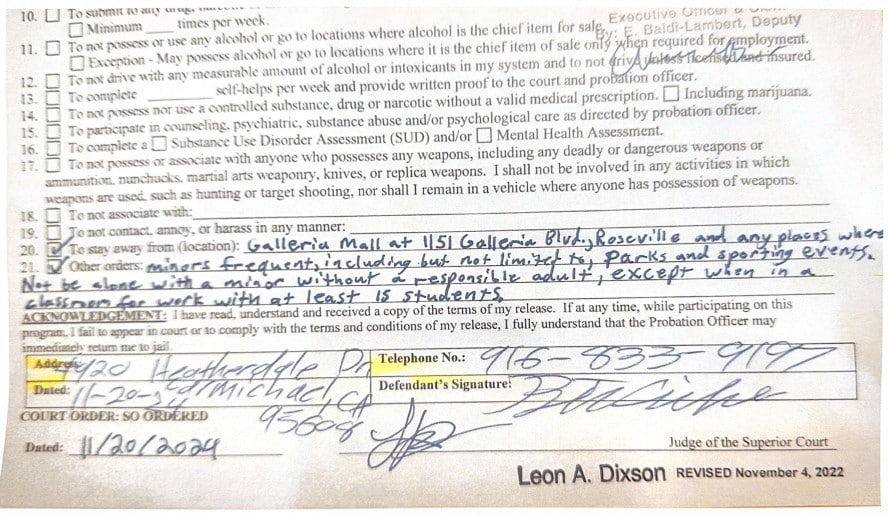 10. To submit to any drug,
Minimum ____ times per week.
Executive Officer &
By: E. Baldi-Lambert, Deputy
11. To not possess or use any alcohol or go to locations where alcohol is the chief item for sale.
Exception - May possess alcohol or go to locations where it is the chief item of sale only when required for employment.
12. To not drive with any measurable amount of alcohol or intoxicants in my system and to not drive unless licensed and insured.
13. To complete ________ self-helps per week and provide written proof to the court and probation officer.
14. To not possess nor use a controlled substance, drug or narcotic without a valid medical prescription. Including marijuana.
15. To participate in counseling, psychiatric, substance abuse and/or psychological care as directed by probation officer.
16. To complete a Substance Use Disorder Assessment (SUD) and/or Mental Health Assessment.
17. To not possess or associate with anyone who possesses any weapons, including any deadly or dangerous weapons or
ammunition, nunchucks, martial arts weaponry, knives, or replica weapons. I shall not be involved in any activities in which
weapons are used, such as hunting or target shooting, nor shall I remain in a vehicle where anyone has possession of weapons.
18. To not associate with:
19. To not contact, annoy, or harass in any manner:
20. To stay away from (location): Galleria Mall at 1151 Galleria Blvd., Roseville and any places where
21. Other orders: minors frequent, including but not limited to, parks and sporting events.
Not be alone with a minor without a responsible adult, except when in a
classroom for work with at least 15 students.
ACKNOWLEDGEMENT: I have read, understand and received a copy of the terms of my release. If at any time, while participating on this
program, I fail to appear in court or to comply with the terms and conditions of my release, I fully understand that the Probation Officer may
immediately return me to jail.
Address: Heatherdale Dr
Telephone No.: 916-833-9197
Dated: 11-20- Carmichael, CA
95608
Defendant's Signature:
COURT ORDER: SO ORDERED
Dated: 11/20/2024
Judge of the Superior Court
Leon A. Dixson REVISED November 4, 2022